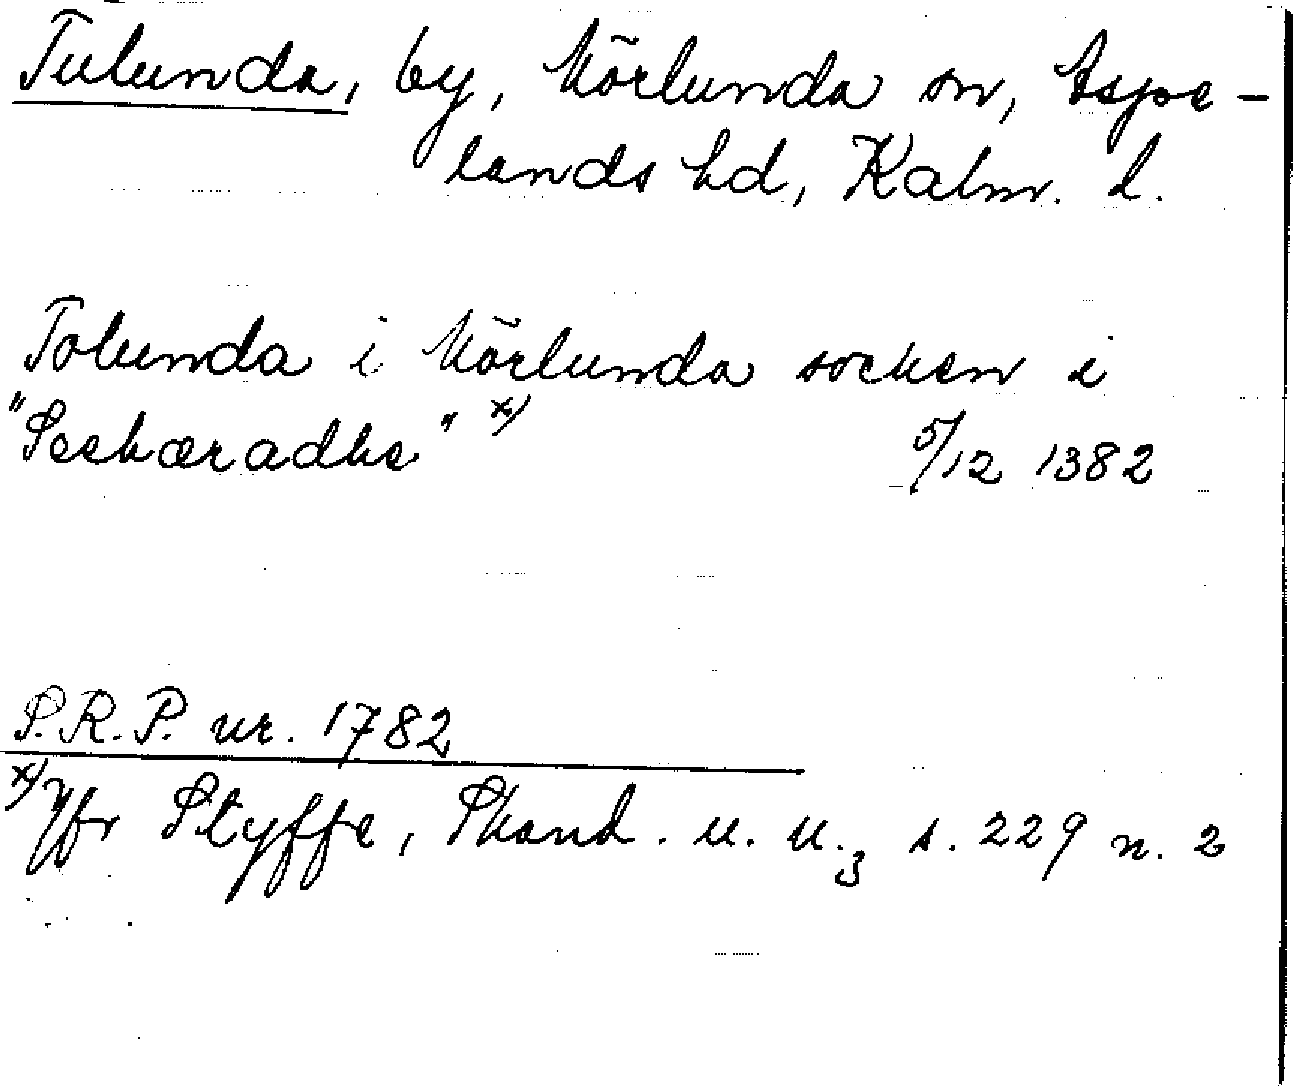 Tulunda, by, Mörlunda sn, Aspe-
lands hd, Kalm. l.
Tolunda i Mörlunda socken i
"Seehæradhe" x)
5/12 1382
S.R.P. nr. 1782
x) Jfr Styffe, Skand. u. u.3 s. 229 n. 2